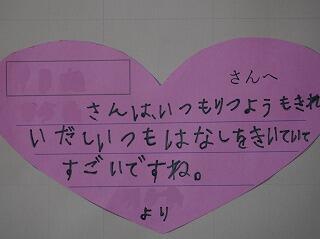 さんへ
さんは、いつもりつようもきれ
いだしいつもはなしをきいていて
すごいですね。
より